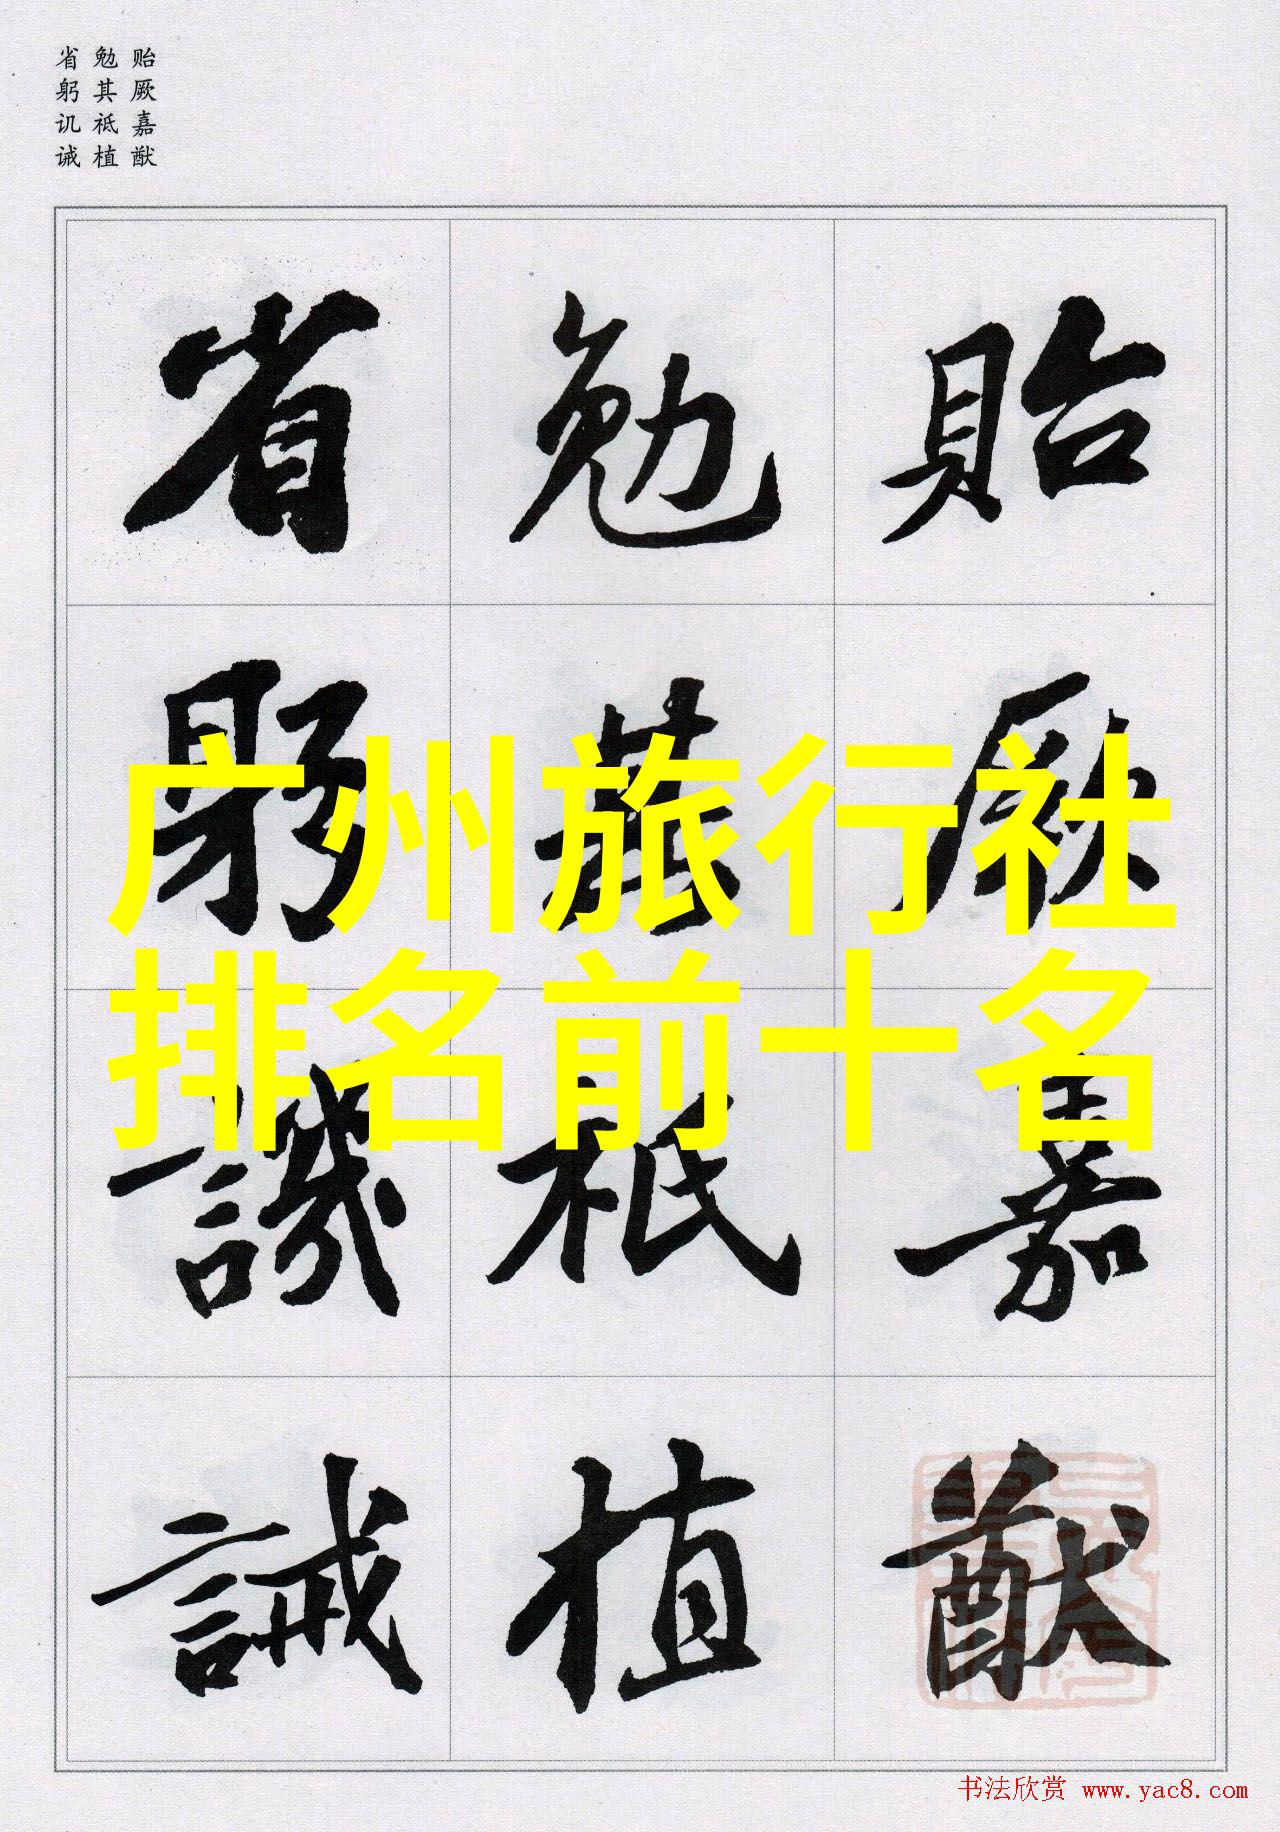 贻厥嘉猷
勉其祗植
省躬讥诫
貽厥嘉猷
勉其祗植
省躬譏誡
广州旅行社
排名前十名
书法欣赏 www.yac8.com